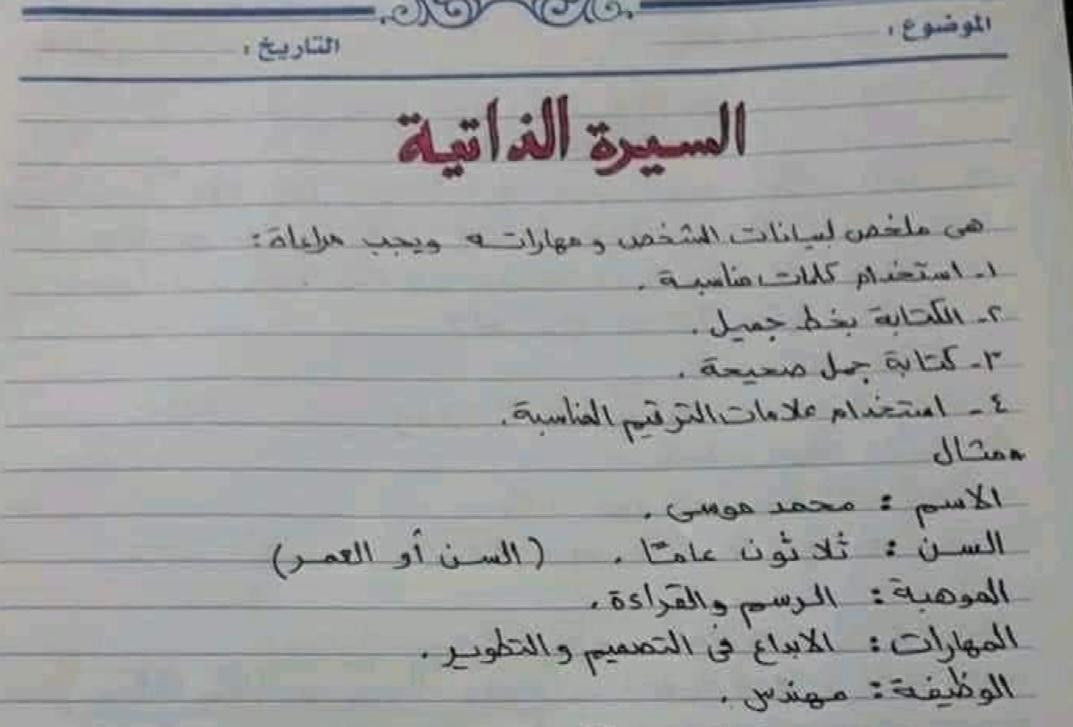 الموضوع :
التاريخ :
السيرة الذاتية
هى ملخص لبيانات الشخص ومهاراته ويجب مراعاة :
١- استخدام كلمات مناسبة .
٢- الكتابة بخط جميل .
٣- كتابة جمل صحيحة .
٤- استخدام علامات الترقيم المناسبة .
مثال
الاسم : محمد موسى .
السن : ثلاثون عامًا . (السن أو العمر)
الموهبة : الرسم والقراءة .
المهارات : الابداع فى التصميم والتطوير .
الوظيفة : مهندس .